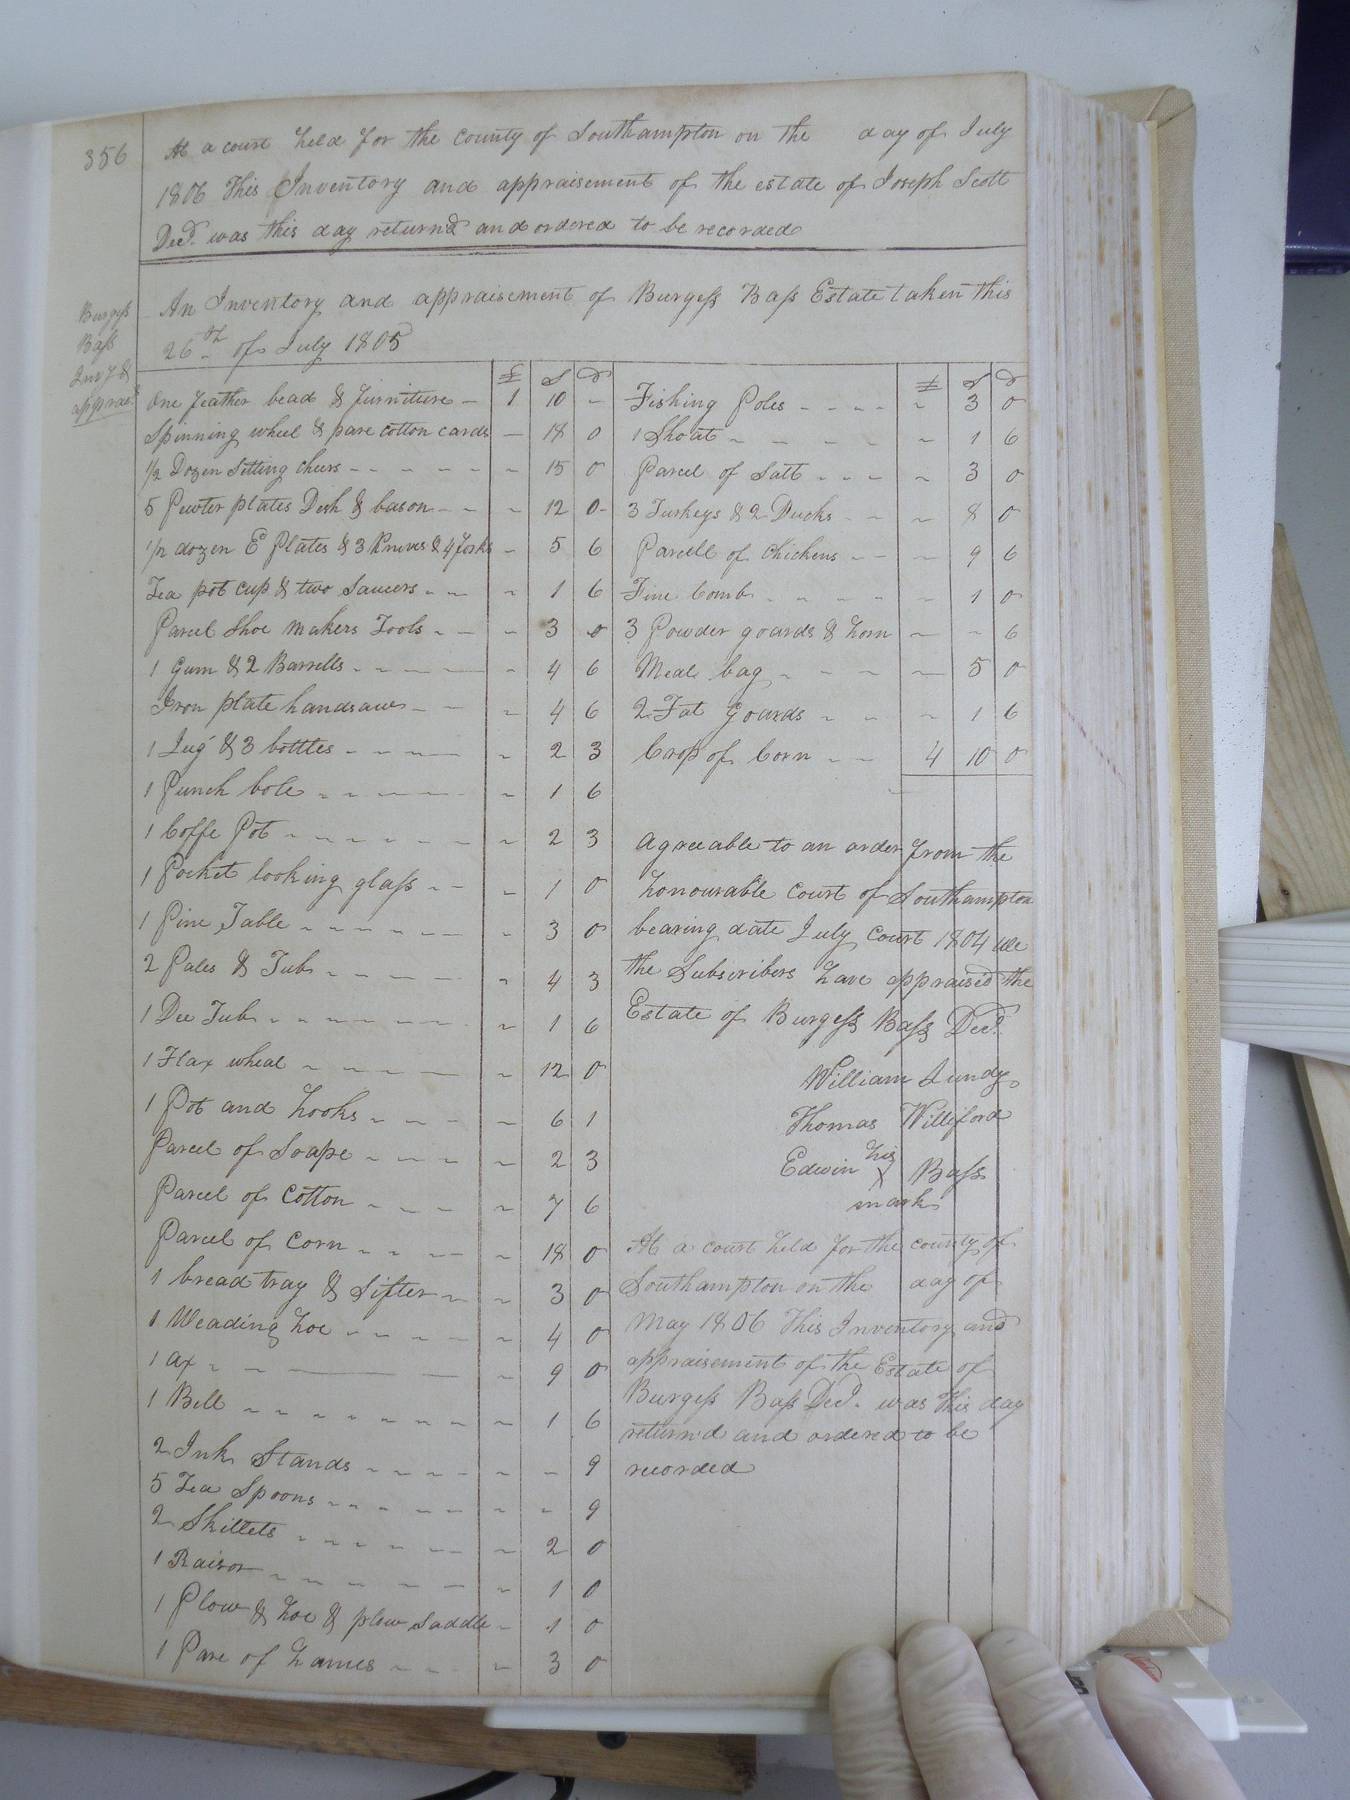 356
At a court held for the County of Southampton on the day of July
1806 This Inventory and appraisement of the estate of Joseph Scott
Decd. was this day returnd and ordered to be recorded
Burgess
Bass
Invy &
appraet
An Inventory and appraisement of Burgess Bass Estate taken this
26th of July 1805
£ S d
One feather bead & furniture - 1 10 -
Spinning wheel & pare cotton cards - 18 0
1/2 Dozen Sitting cheers - 15 0
5 Pewter plates Desh & bason - 12 0
1/2 dozen E Plates & 3 Knives & 4 forks - 5 6
Tea pot cup & two Saucers - 1 6
Parcel Shoe makers Tools - 3 0
1 Gum & 2 Barrells - 4 6
Iron plate handsaw - 4 6
1 Jug & 3 bottles - 2 3
1 Punch bole - 1 6
1 Coffe Pot - 2 3
1 Pocket looking glass - 1 0
1 Pine Table - 3 0
2 Pales & Tub - 4 3
1 Dee Tub - 1 6
1 Flax wheal - 12 0
1 Pot and hooks - 6 1
Parcel of Soape - 2 3
Parcel of Cotton - 7 6
Parcel of Corn - 18 0
1 bread tray & Sifter - 3 0
1 Weading hoe - 4 0
1 ax - 9 0
1 Bell - 1 6
2 Ink Stands - - 9
5 Tea Spoons - - 9
2 Skillets - 2 0
1 Raisor - 1 0
1 Plow & hoe & plow Saddle - 1 0
1 Pare of hames - 3 0
£ S d
Fishing Poles - 3 0
1 Shoat - 1 6
Parcel of Salt - 3 0
3 Turkeys & 2 Ducks - 8 0
Parcell of Chickens - 9 6
Fine Comb - 1 0
3 Powder goards & horn - - 6
Meal bag - 5 0
2 Fat Goards - 1 6
Crop of Corn 4 10 0
Agreeable to an order from the
honourable Court of Southampton
bearing date July Court 1804 We
the Subscribers have appraised the
Estate of Burgess Bass Decd.
William Lundy
Thomas Williford
Edwin his X Bass
mark
At a court held for the county of
Southampton on the day of
May 1806 This Inventory and
appraisement of the Estate of
Burgess Bass Decd. was this day
returnd and ordered to be
recorded